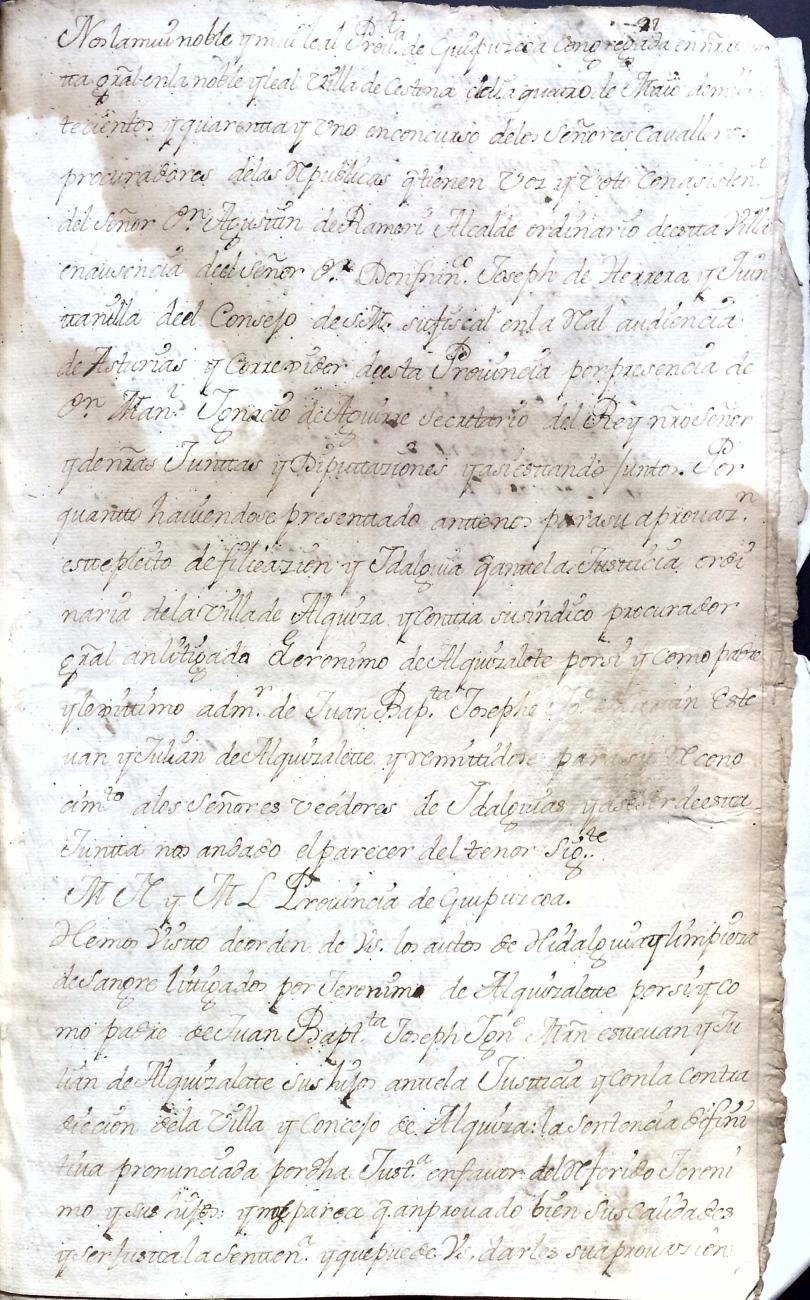 Nos la mui noble y mui leal Prou.ᵗᵃ de Guipuzcoa Congregada en nr̃a
tta gr̃al en la noble y leal Villa de Cestona a quatro de Maio de mill
tecientos y quarentta y Uno en concurso de los Señores Cavalleros
procuradores de las Republicas q̃ tienen Voz y Voto Con asistenᵃ
del Señor Dⁿ. Agustin de Rameri Alcalde ordinario de esta Villa
en ausencia del Señor Dⁿ Don franᶜᵒ. Joseph de Herrera y Quin
ttanilla del Consejo de S.M. su fiscal en la Real audiencia
de Asturias y Corregidor de esta Prouincia por presencia de
Dⁿ. Manˡ. Ignacio de Aguirre Secretario del Rey nr̃o Señor
y de nr̃as Junttas y Diputtaziones y asi esttando Junttos. Por
quantto haviendose presenttado antte nos para su aprouazⁿ.
estte pleito de filieazion y Idalguia q̃ antte la Justticia ordi
naria de la Villa de Alquiza y Contra su sindico procurador
gr̃al an litigado Geronimo de Alquizalete por si y como padre
y lexittimo admʳ. de Juan Bapᵗᵃ Josephe Este
uan y Julian de Alquizalette y remittidose para su Recono
cimᵗᵒ a los Señores Veedores de Idalguias y asesor de estta
Juntta nos an dado el parecer del tenor Sigᵗᵉ.
M N y M L Prouincia de Guipuzcoa.
Hemos Vistto de orden de Vs. los autos de Hidalguia y limpieza
de Sangre littigados por Jeronimo de Alquizalette por si y co
mo padre de Juan Baptᵗᵃ Joseph Ignᵒ Mrñ esteuan y Ju
lian de Alquizalette sus hijos antte la Justticia y con la Contra
diccion de la Villa y Concejo de Alquiza: la Sentencia difini
tiua pronunciada por dha Justᵃ. en fauor del Referido Jeroni
mo y sus hijos: y me parece q̃ an prouado bien sus Calidades
y ser Justta la Senttenᵃ. y que puede Vs. darles su aprouazion